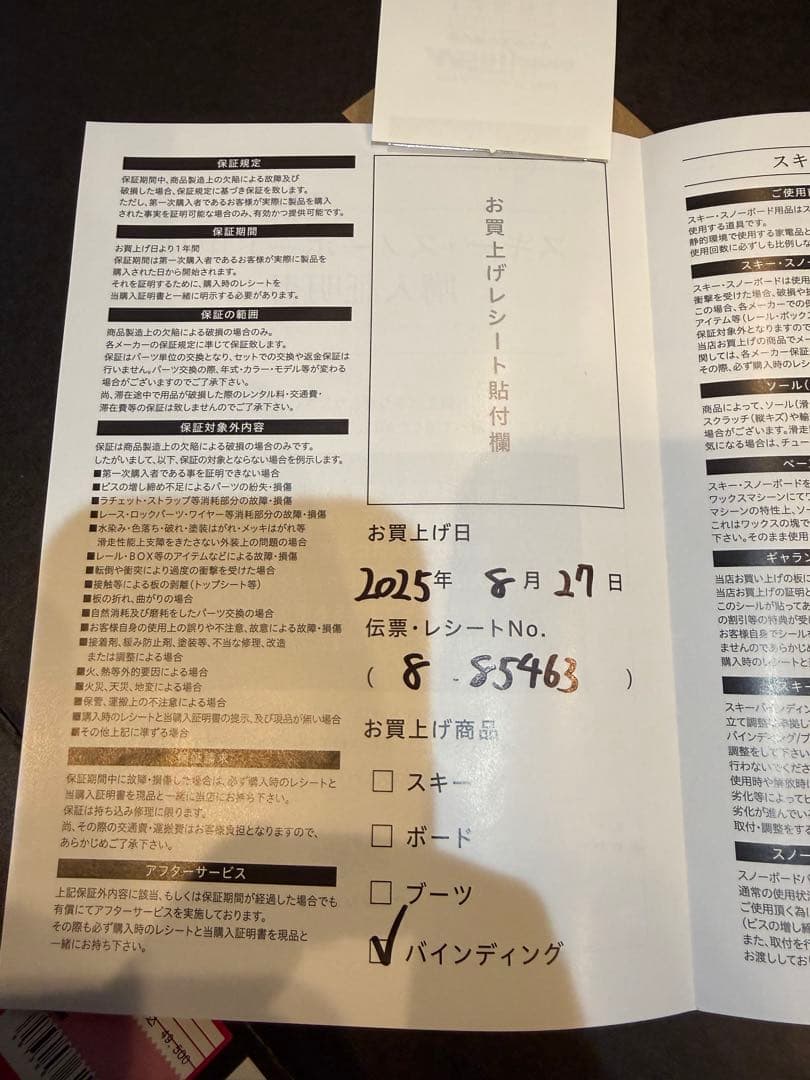 保証規定
保証期間中、商品製造上の欠陥による故障及び
破損した場合、保証規定に基づき保証を致します。
ただし、第一次購入者であるお客様が実際に製品を購入
された事実を証明可能な場合のみ、有効かつ提供可能です。
保証期間
お買上げ日より1年間
保証期間は第一次購入者であるお客様が実際に製品を
購入された日から開始されます。
それを証明するために、購入時のレシートを
当購入証明書と一緒に明示する必要があります。
保証の範囲
商品製造上の欠陥による破損の場合のみ。
各メーカーの保証規定に準じて保証致します。
保証はパーツ単位の交換となり、セットでの交換や返金保証は
行いません。パーツ交換の際、年式・カラー・モデル等が変わる
場合がございますのでご了承下さい。
尚、滞在途中で用品が破損した際のレンタル料・交通費・
滞在費等の保証は致しませんのでご了承下さい。
保証対象外内容
保証は商品製造上の欠陥による破損の場合のみです。
したがいまして、以下、保証の対象とならない場合を例示します。
■第一次購入者である事を証明できない場合
■ビスの増し締め不足によるパーツの紛失・損傷
■ラチェット・ストラップ等消耗部分の故障・損傷
■レース・ロックパーツ・ワイヤー等消耗部分の故障・損傷
■水染み・色落ち・破れ・塗装はがれ・メッキはがれ等
滑走性能上支障をきたさない外装上の問題の場合
■レール・BOX等のアイテムなどによる故障・損傷
■転倒や衝突により過度の衝撃を受けた場合
■接触等による板の剥離(トップシート等)
■板の折れ、曲がりの場合
■自然消耗及び磨耗をしたパーツ交換の場合
■お客様自身の使用上の誤りや不注意、故意による故障・損傷
■接着剤、緩み防止剤、塗装等、不当な修理、改造
または調整による場合
■火、熱等外的要因による場合
■火災、天災、地変による場合
■保管、運搬上の不注意による場合
■購入時のレシートと当購入証明書の提示、及び現品が無い場合
■その他上記に準ずる場合
保証請求
保証期間中に故障・損傷した場合は、必ず購入時のレシートと
当購入証明書を現品と一緒に当店にお持ち下さい。
保証は持ち込み修理に限ります。
尚、その際の交通費・運搬費はお客様負担となりますので、
あらかじめご了承下さい。
アフターサービス
上記保証外内容に該当、もしくは保証期間が経過した場合でも
有償にてアフターサービスを実施しております。
その際も必ず購入時のレシートと当購入証明書を現品と
一緒にお持ち下さい。
お買上げレシート貼付欄
お買上げ日
2025年 8月27日
伝票・レシートNo.
( 8 - 85463 )
お買上げ商品
□ スキー
□ ボード
□ ブーツ
☑ バインディング
スキー
ご使用
スキー・スノーボード用品は
使用する道具です。
静的環境で使用する家電品と
使用回数に必ずしも比例しな
スキー・スノー
スキー・スノーボードは使用
衝撃を受けた場合、破損や
この場合、各メーカーでの保
アイテム等(レール・ボックス
保証対象外となりますので
当店お買上げの商品でメー
関しては、各メーカー保証
その際、必ず購入時のレシ
ソール(
商品によって、ソール(滑
スクラッチ(縦キズ)や輸
場合がございます。滑走
気になる場合は、チュー
ベー
スキー・スノーボードを
ワックスマシーンにて
マシーンの特性上、ソー
これはワックスの塊で
下さい。そのまま使用
ギャラン
当店お買い上げの板に
当店お買上げの証明と
このシールが貼ってあ
の割引等の特典が受
お客様自身でシール
ませんのであらかじ
購入時のレシートと
スキー
スキーバインディン
立て調整は
バインディング/ブ
調整をして下さい
行わないでくださ
使用時や解放時
劣化等によってビ
劣化が進んでい
取付・調整をする
スノー
スノーボードバ
通常の使用状
ご使用頂く為に
(ビスの増し締
また、取付を行
お渡ししており
49,500